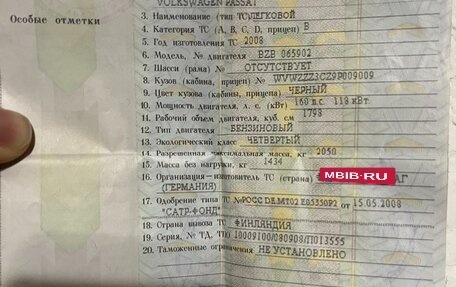 VOLKSWAGEN PASSAT
Особые отметки
3. Наименование (тип ТС) ЛЕГКОВОЙ
4. Категория ТС (А, В, С, D, прицеп) B
5. Год изготовления ТС 2008
6. Модель, № двигателя BZB 065902
7. Шасси (рама) № ОТСУТСТВУЕТ
8. Кузов (кабина, прицеп) № WVWZZZ3CZ9P009009
9. Цвет кузова (кабины, прицепа) ЧЕРНЫЙ
10. Мощность двигателя, л. с. (кВт) 160 л.с. 118 кВт
11. Рабочий объем двигателя, куб. см 1798
12. Тип двигателя БЕНЗИНОВЫЙ
13. Экологический класс ЧЕТВЕРТЫЙ
14. Разрешенная максимальная масса, кг 2050
15. Масса без нагрузки, кг 1434
16. Организация—изготовитель ТС (страна) MBIB-RU АГ
(ГЕРМАНИЯ)
17. Одобрение типа ТС № РОСС DE.МТ02.Е05350Р2 от 15.05.2008
"САТР-ФОНД"
18. Страна вывоза ТС ФИНЛЯНДИЯ
19. Серия, № ТД, ТПО 10009100/080908/П013555
20. Таможенные ограничения НЕ УСТАНОВЛЕНО